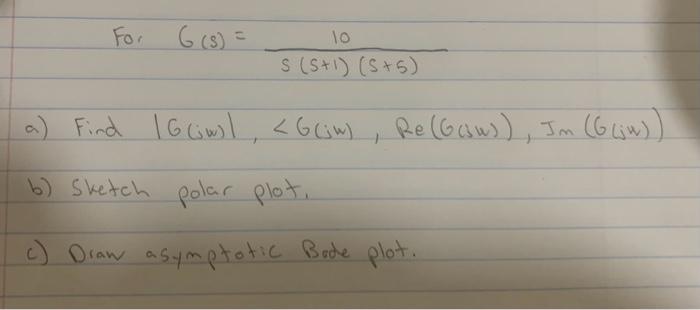 For G(s) = 10
s (s+1) (s+5)
a) Find |G(jw)|, <G(jw), Re(G(jw)), Im (G(jw))
b) Sketch polar plot.
c) Draw asymptotic Bode plot.